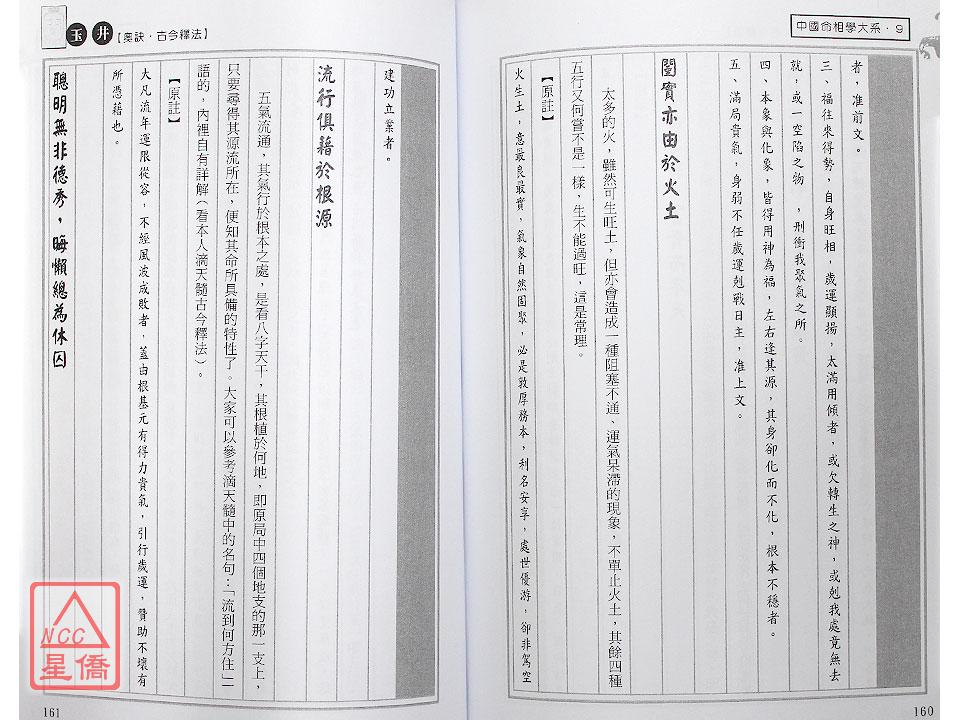 中國命相學大系‧9
者，准前文。
三、福往來得勢，自身旺相，歲運顯揚，太滿用傾者，或欠轉生之神，或剋我處竟無去
就，或一空陷之物　，刑衝我聚氣之所。
四、本象與化象，皆得用神為福，左右逢其源，其身卻化而不化，根本不穩者。
五、滿局貴氣，身弱不任歲運剋戰日主，准上文。
閫實亦由於火土
太多的火，雖然可生旺土，但亦會造成一種阻塞不通、運氣呆滯的現象，不單止火土，其餘四種
五行又何嘗不是一樣，生不能過旺，這是常理。
【原註】
火生土，意最良最實，氣象自然團聚，必是敦厚務本，利名安享，處世優游，卻非駕空
160
玉井【奧訣‧古今釋法】
建功立業者。
流行俱藉於根源
五氣流通，其氣行於根本之處，是看八字天干，其根植於何地，即原局中四個地支的那一支上，
只要尋得其源流所在，便知其命所具備的特性了。大家可以參考滴天髓中的名句：「流到何方住」一
語的，內裡自有詳解（看本人滴天髓古今釋法）。
【原註】
大凡流年運限從容，不經風波成敗者，蓋由根基元有得力貴氣，引行歲運，贊助不壞有
所憑藉也。
聰明無非德秀，晦懶總為休囚
161
NCC
星僑